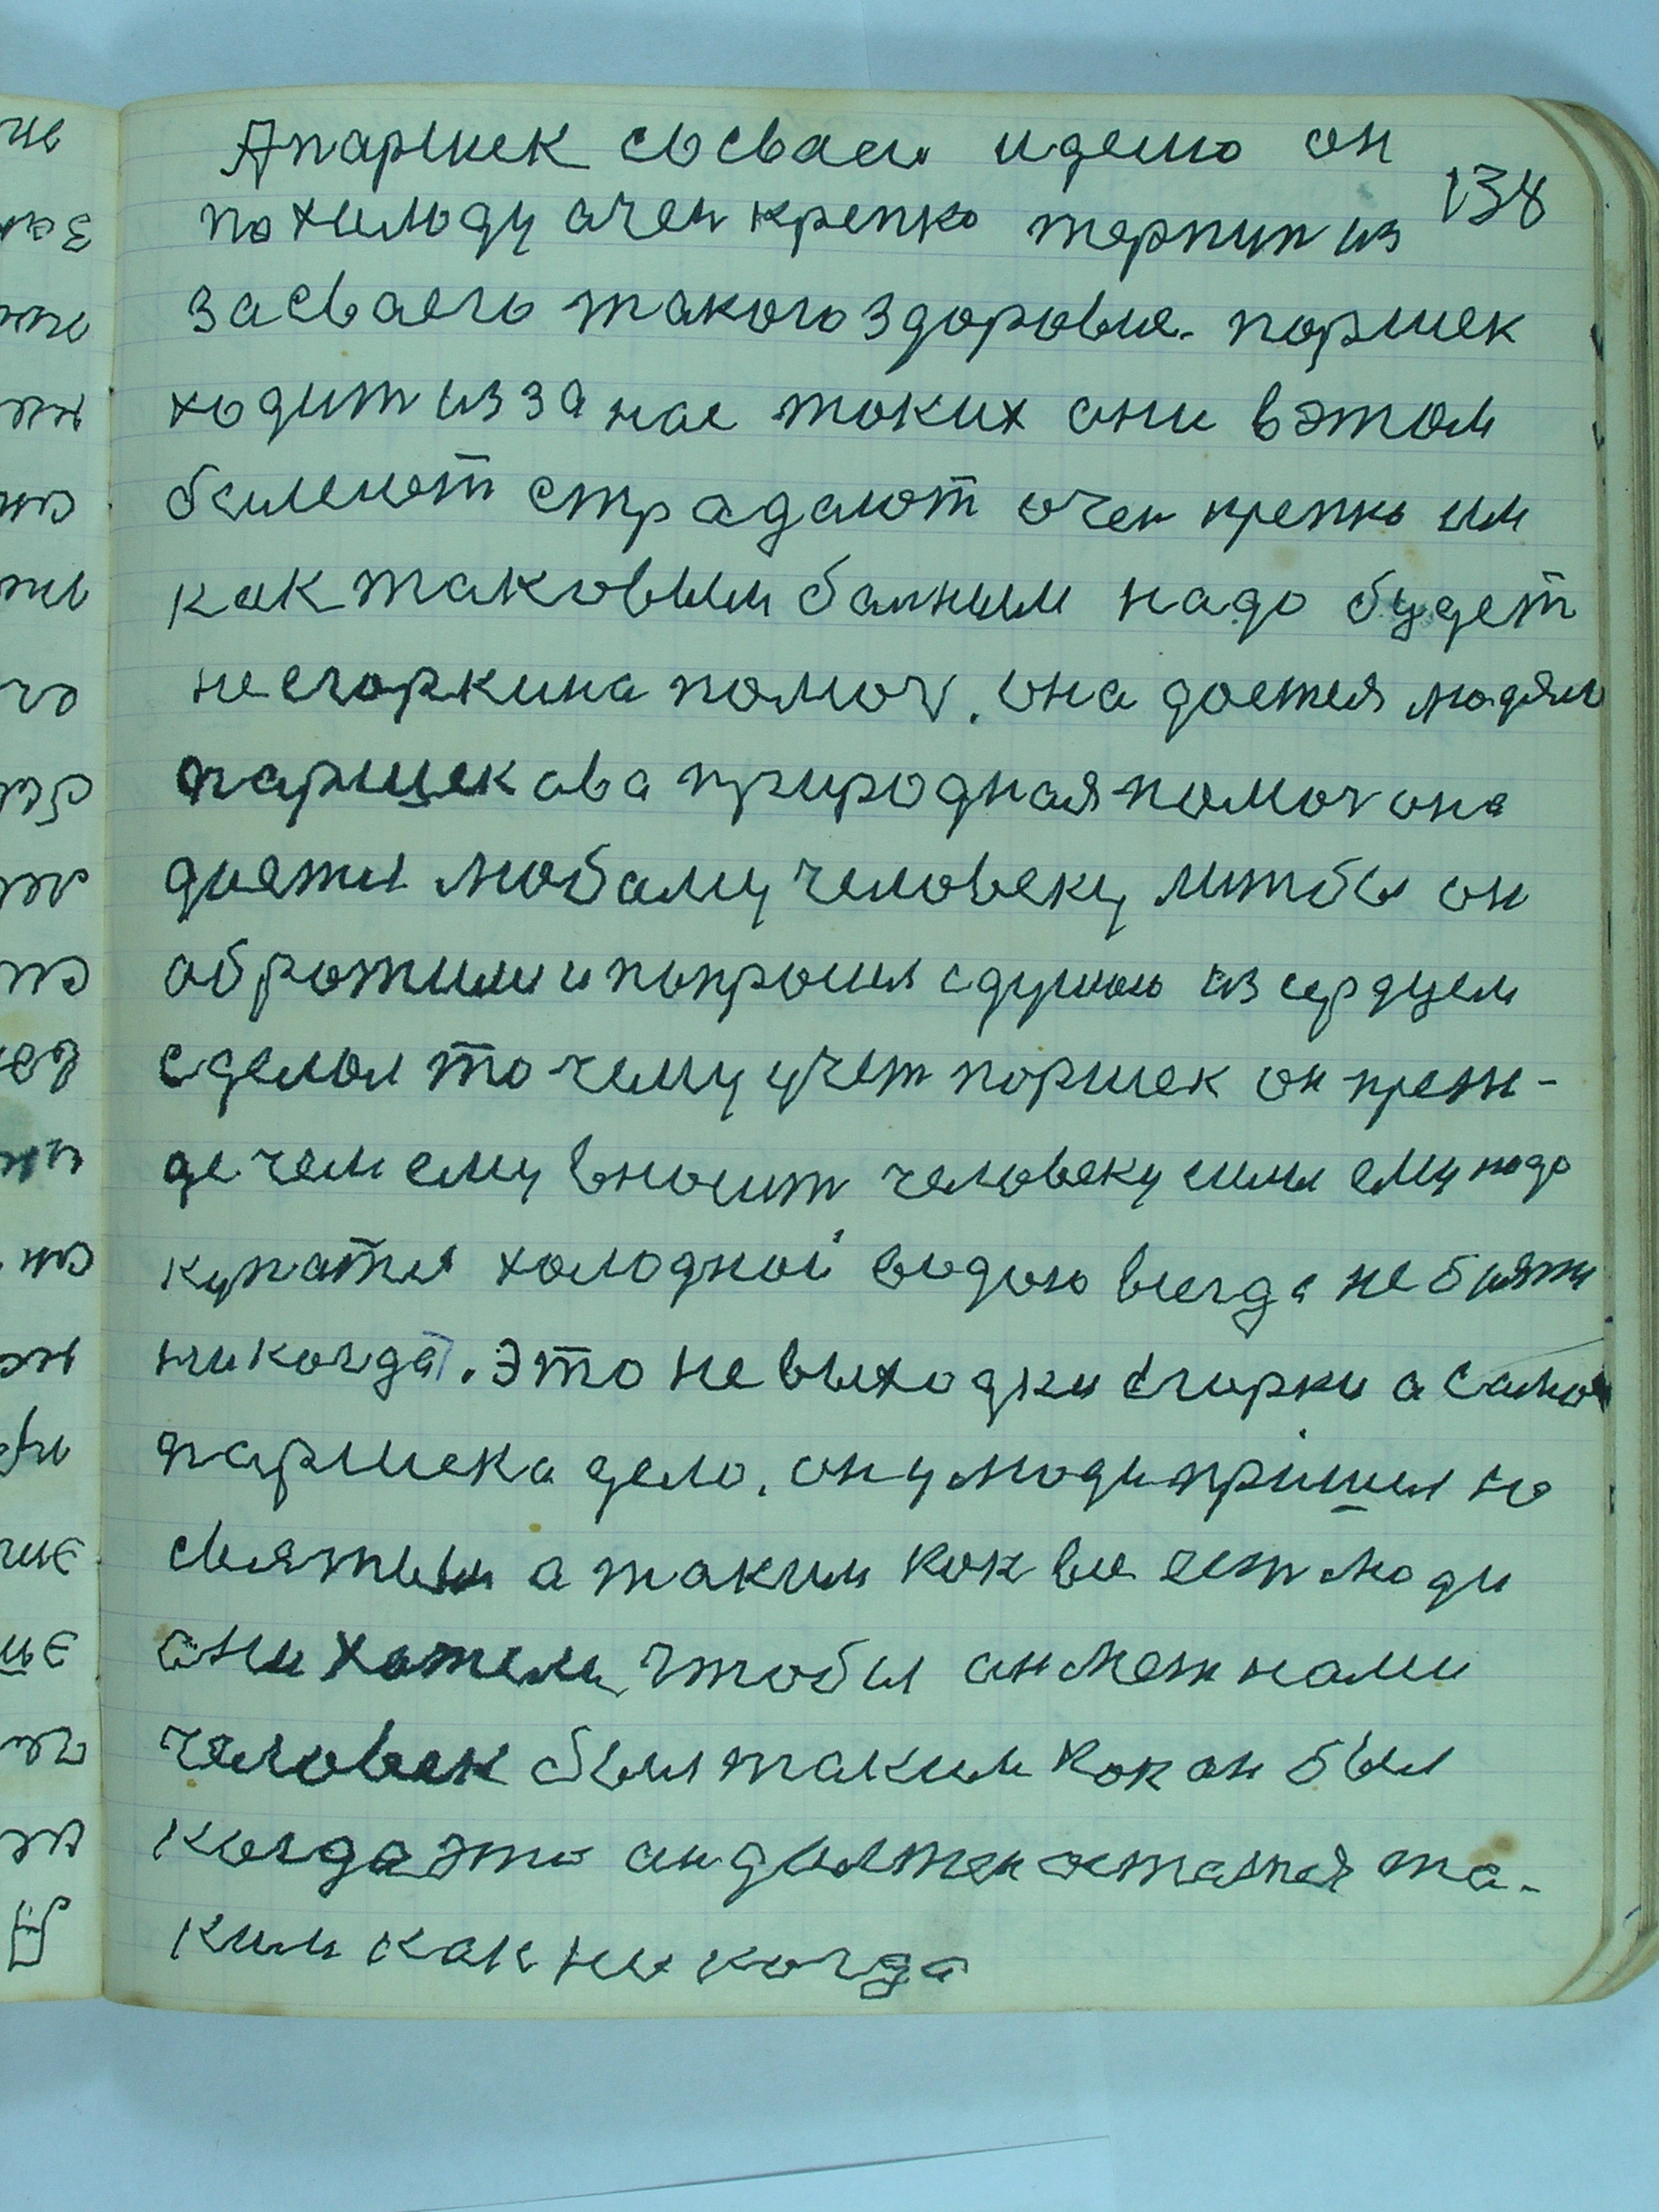 Апаршек сосваеи идею он
138
по холоду ачен крепко терпит из
засваего такого здоровие. поршек
ходит из за нас токих они вэтом
болеют страдают очен крепко им
как таковым балным надо будет
не егоркина помоч. она доется людям
паршекова природная помоч она
доется любому человеку литбы он
обротился и попросил сдушою из сердцем
сделол то чему учет поршек он преж-
де чем ему вносит человеку силы ему надо
купатся холодной водою всегда не боятся
никогда. Это не выходки Егорки а само
паршека дело. он у люди пришел не
святым а таким как все ест люди
они хотели чтобы он меж нами
человек был таким кокан был
когда это ан должен астатся та-
ким как ни когда